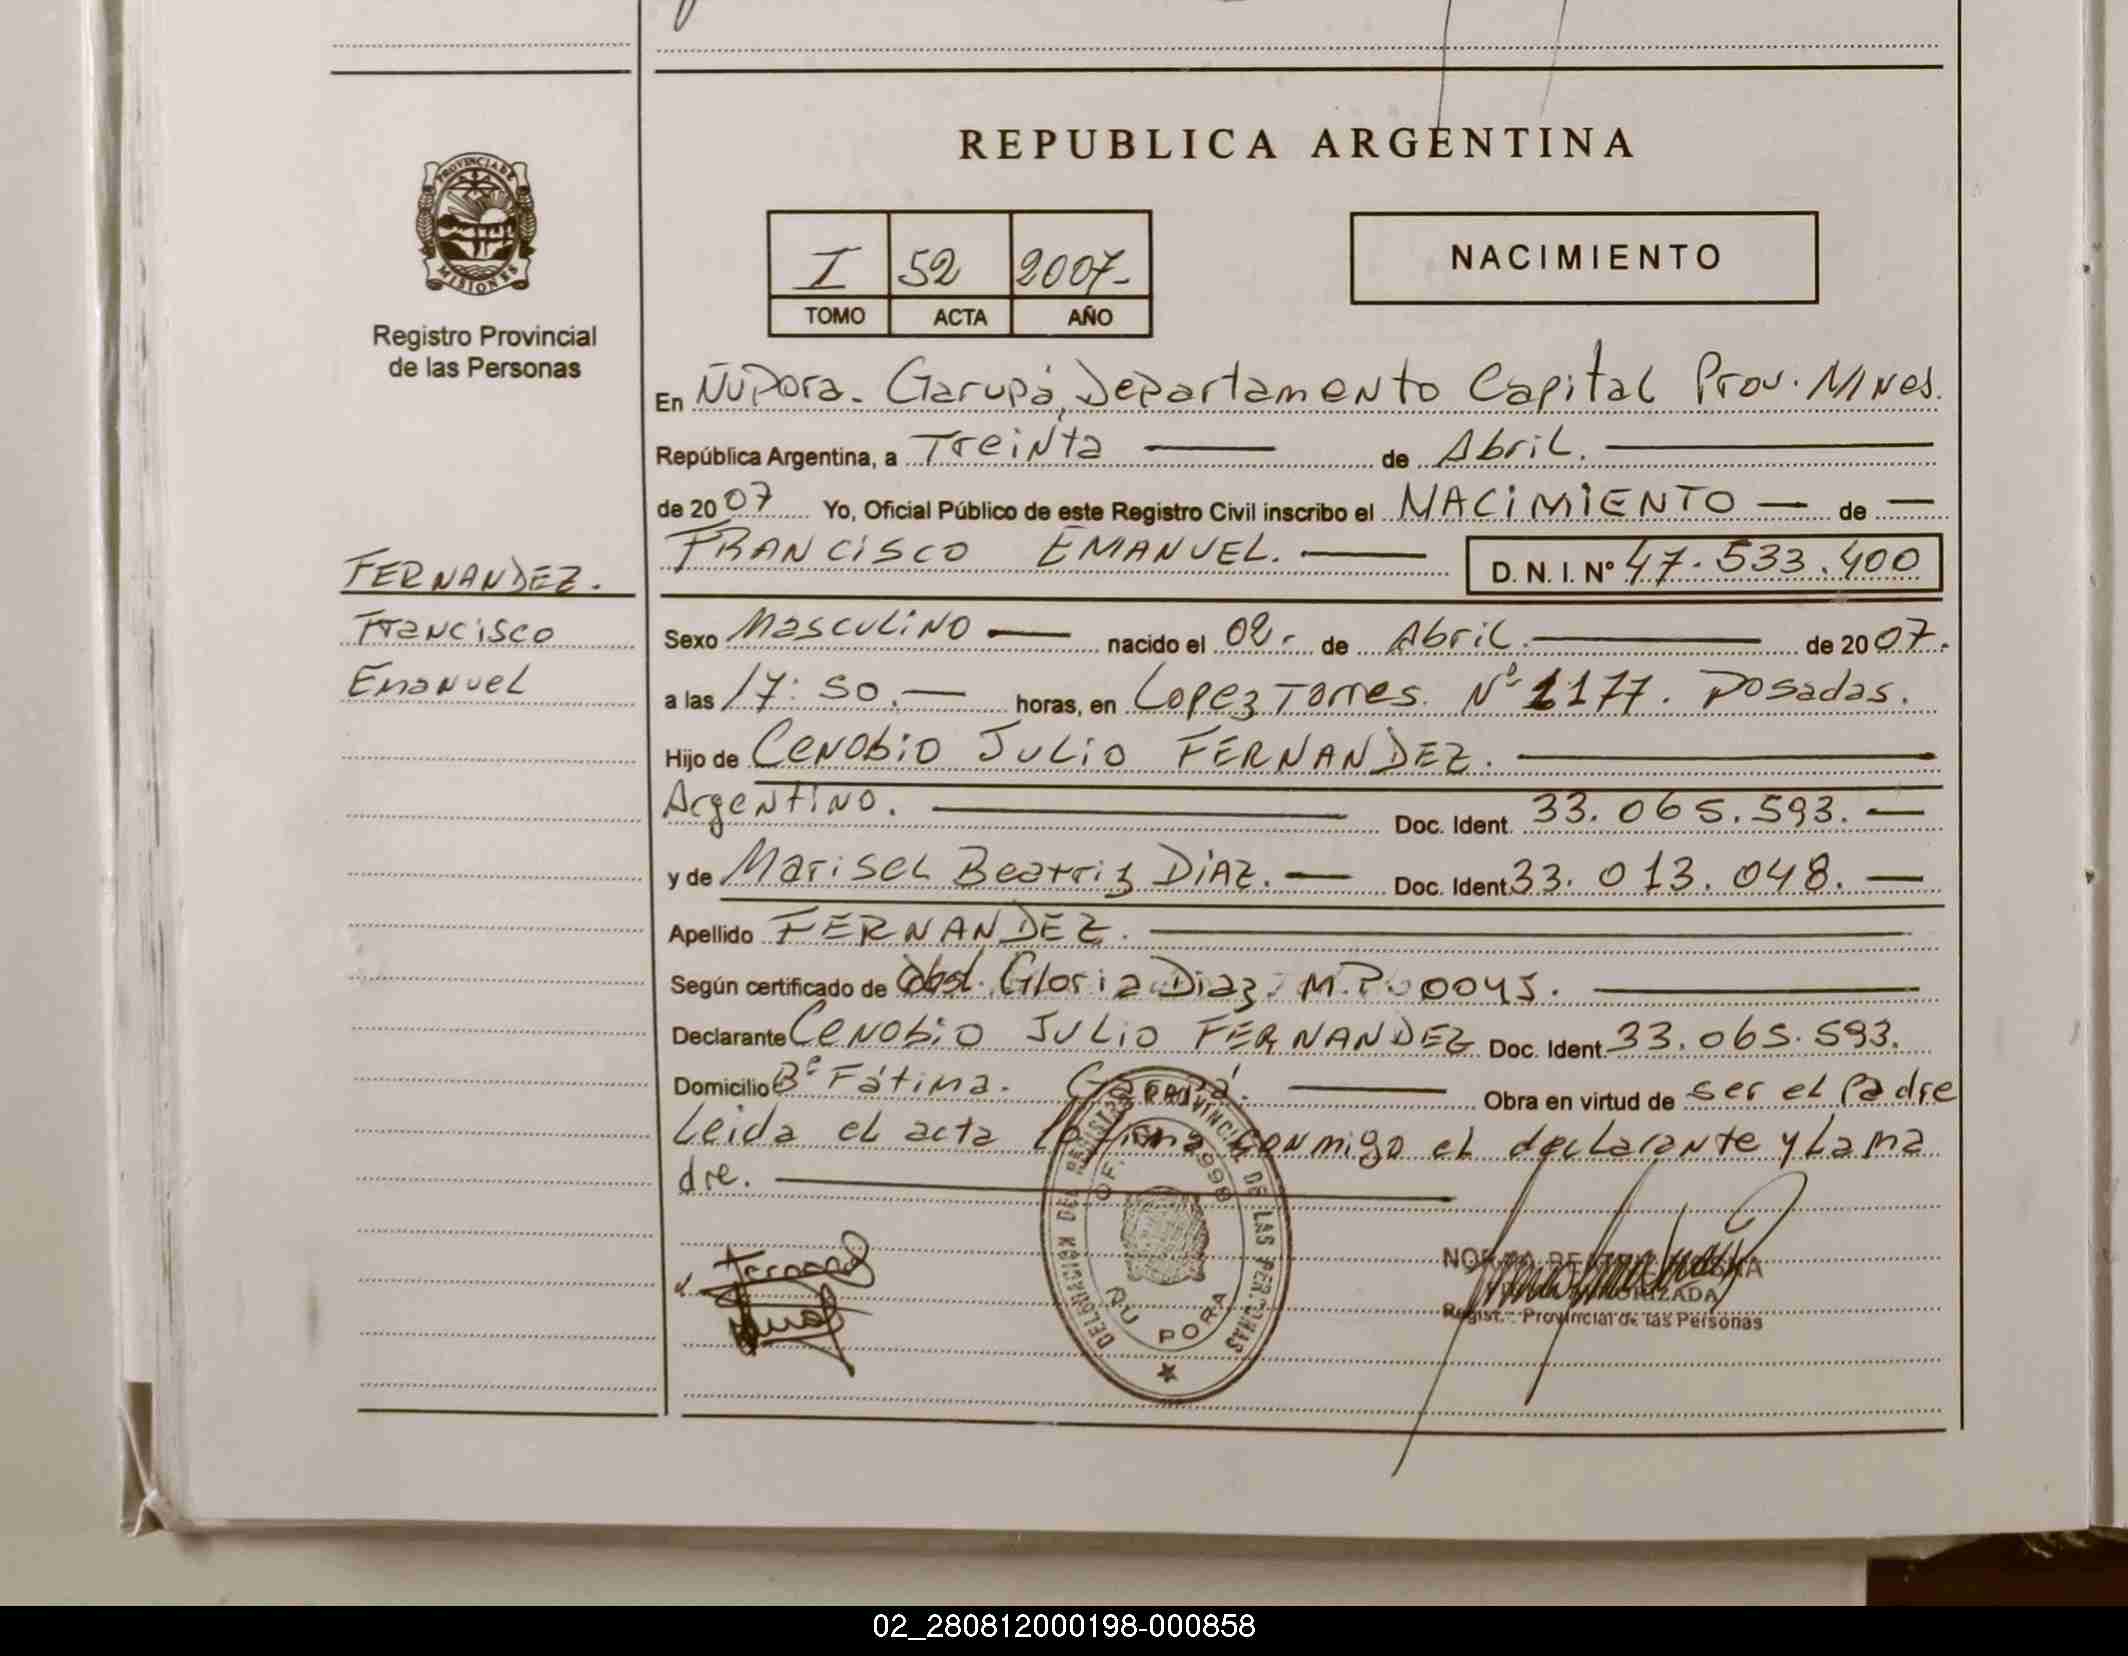 REPUBLICA ARGENTINA
PROVINCIA DE
MISIONES
Registro Provincial
de las Personas
I 52 2007-
TOMO ACTA AÑO
NACIMIENTO
En ÑuPora. Garupá, Departamento Capital Prov. Mnes.
República Argentina, a Treinta de Abril.
de 2007 Yo, Oficial Público de este Registro Civil inscribo el NACIMIENTO de
FRANCISCO EMANUEL. D. N. I. Nº 47.533.400
FERNANDEZ.
Francisco
Emanuel
Sexo Masculino nacido el 02. de Abril. de 2007.
a las 17:50. horas, en Lopez Torres. Nº 1177. Posadas.
Hijo de Cenobio Julio FERNANDEZ.
Argentino. Doc. Ident. 33.065.593.
y de Marisel Beatriz DiAZ. Doc. Ident. 33.013.048.
Apellido FERNANDEZ.
Según certificado de Obst. Gloria Diaz. M.P. 0045.
Declarante Cenobio Julio FERNANDEZ Doc. Ident. 33.065.593.
Domicilio Bº Fátima. Garupá. Obra en virtud de ser el Padre
Leida el acta la firma conmigo el declarante y la ma
dre.
DELEGACION DEL REGISTRO PROVINCIAL DE LAS PERSONAS
OF. 2998
ÑU PORA
NORMA BEATRIZ
AUTORIZADA
Regist. Provincial de las Personas
02_280812000198-000858